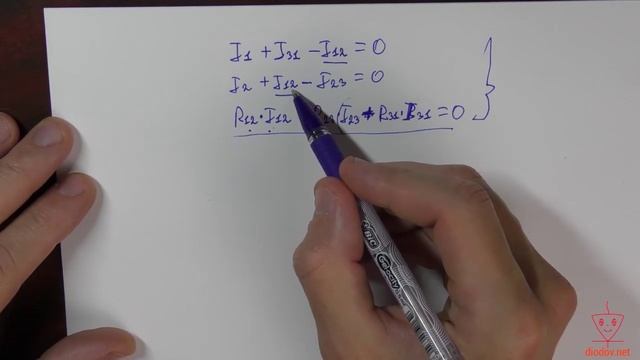 I1 + I31 - I12 = 0
I2 + I12 - I23 = 0
R12 · I12 I23 + R31 · I31 = 0
BIC
diodov.net